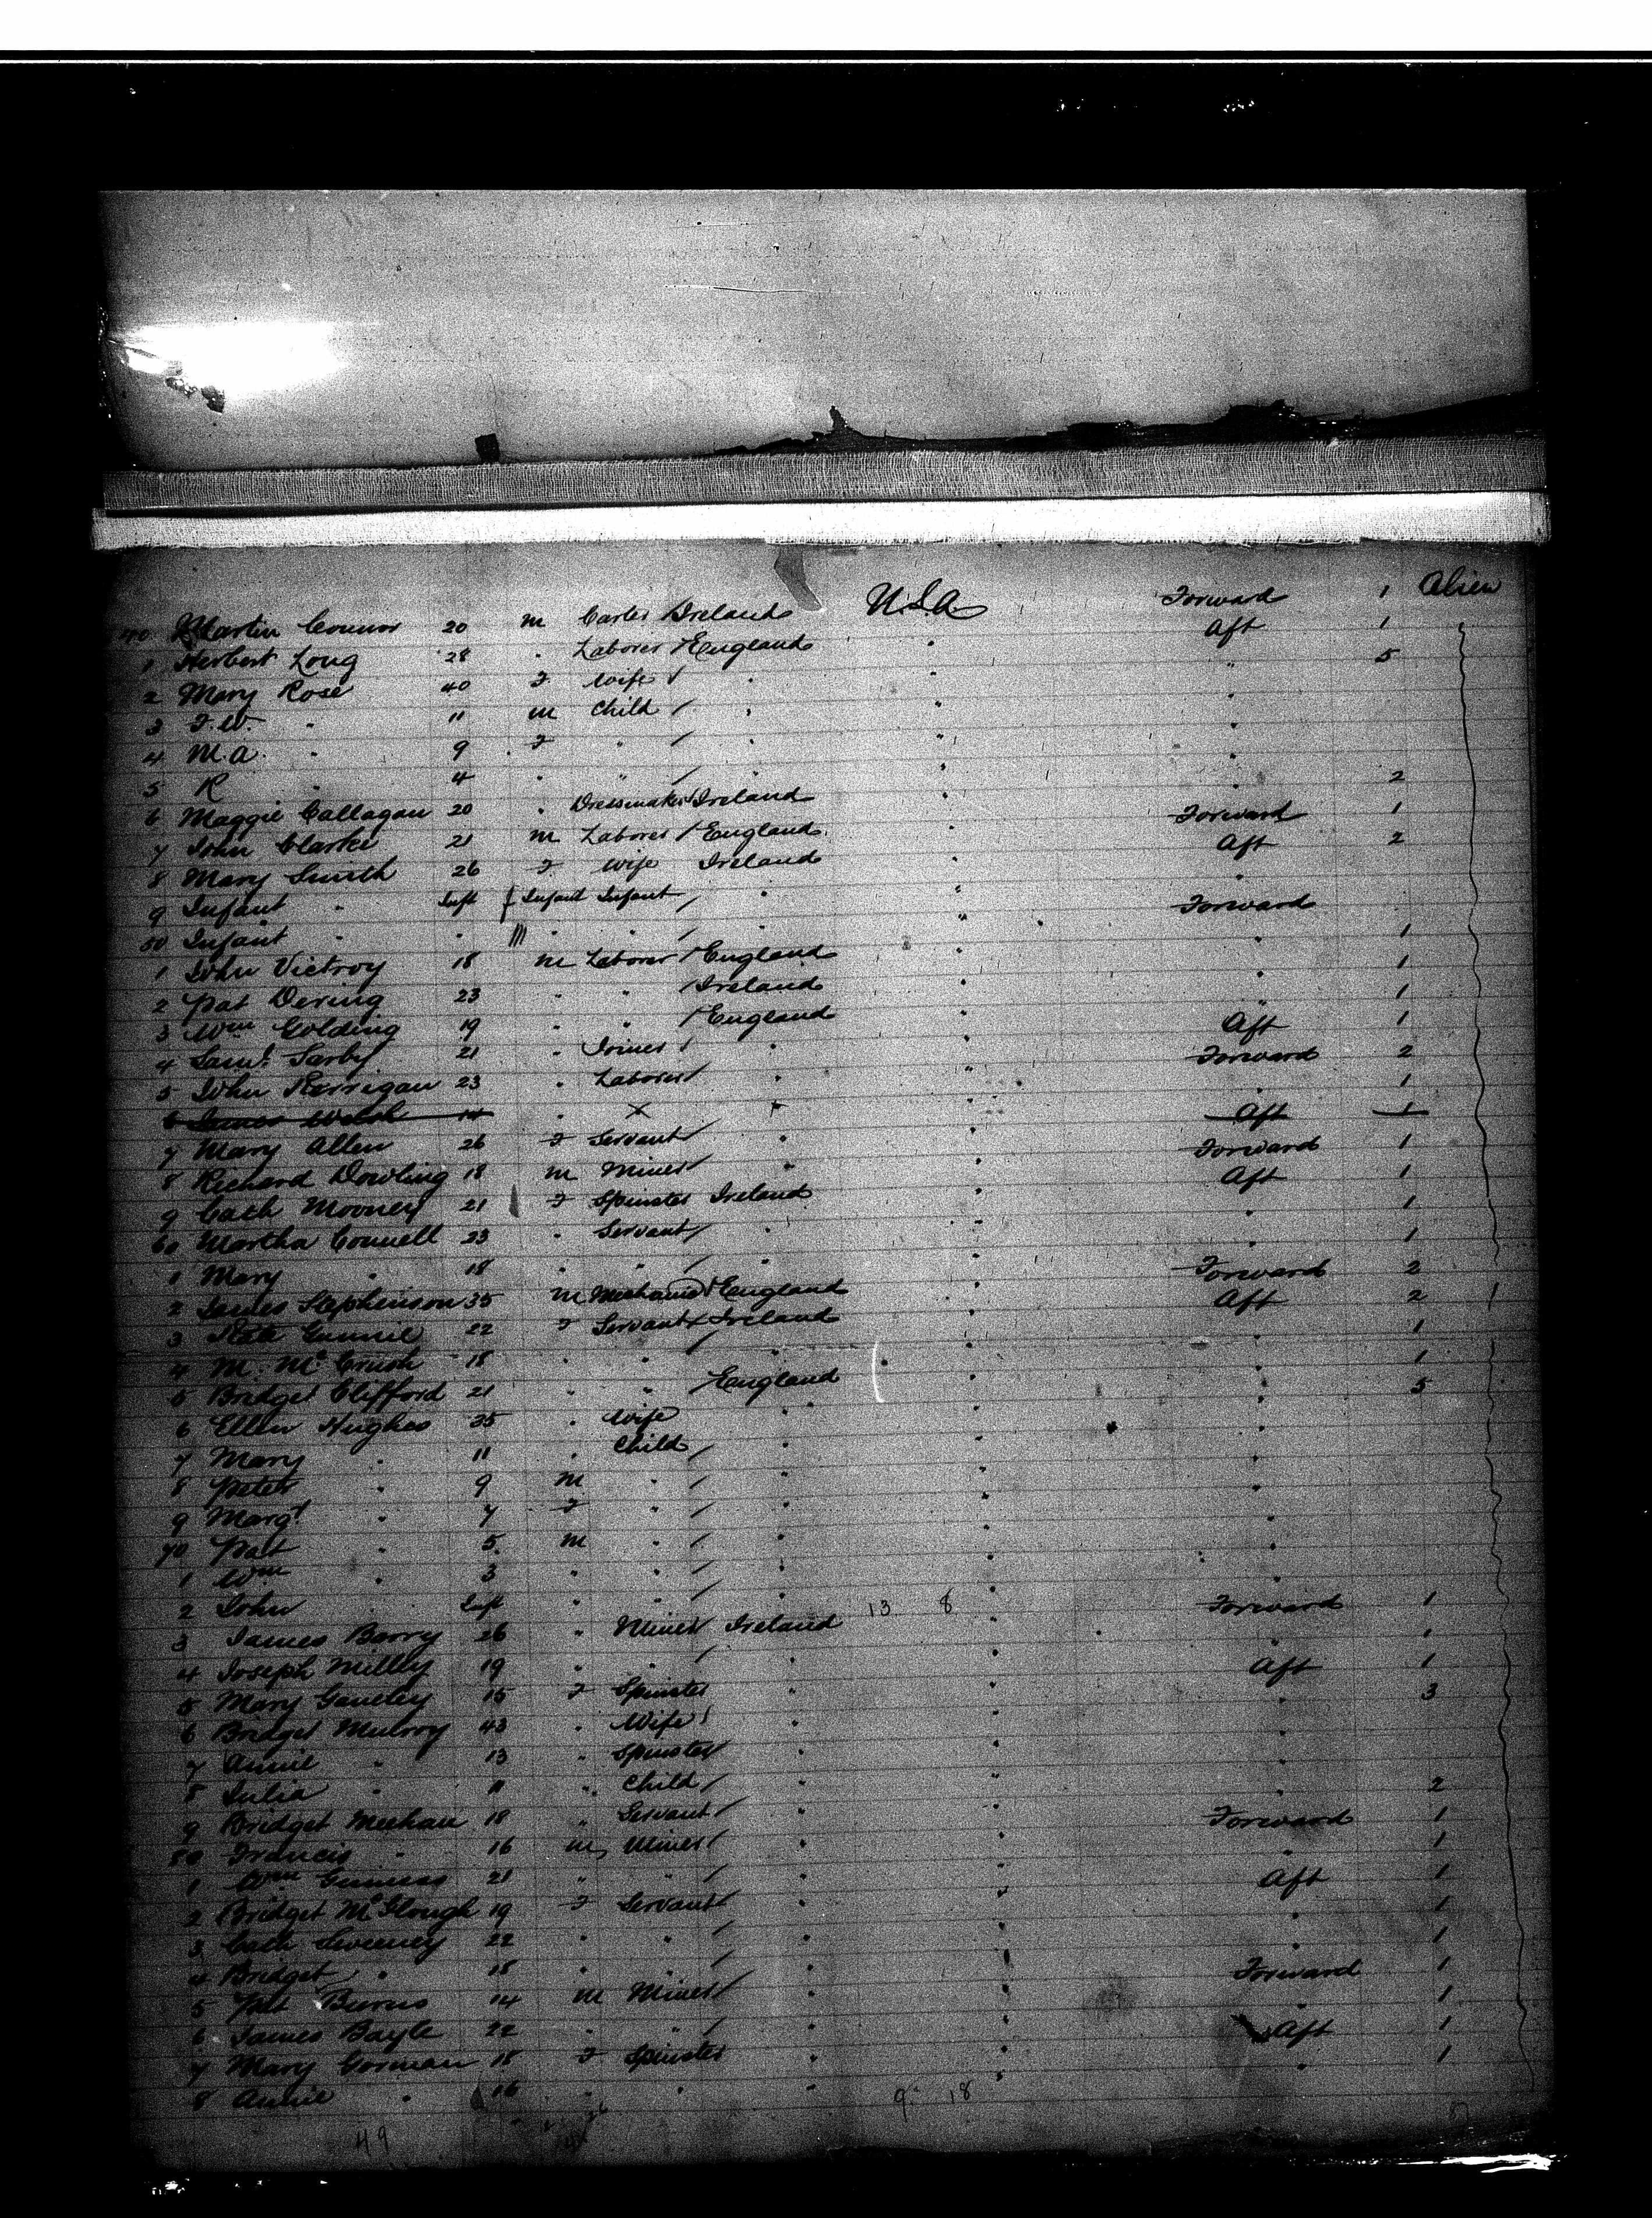 40 Martin Connor 20 m Carter Ireland U.S.A. Forward 1 Alien
1 Herbert Long 28 " Laborer / England " Aft 1
2 Mary Rose 40 F Wife / " " " 5
3 F.W. " 11 m Child / " " "
4 M.A. " 9 F " / " " "
5 R " 4 " " / " " "
6 Maggie Callagan 20 " Dressmaker Ireland " " 2
7 John Clarke 21 m Laborer / England " Forward 1
8 Mary Smith 26 F Wife Ireland " Aft 2
9 Infant " Inft Infant Infant / " " "
50 Infant " " " " / " " Forward
1 John Victroy 18 m Laborer / England " " 1
2 Pat Dering 23 " " / Ireland " " 1
3 Wm Golding 19 " " / England " " 1
4 Saml Sarby 21 " / " " Aft 1
5 John Kerrigan 23 " Laborer / " " Forward 2
6 James Welsh " x " " Aft 1
7 Mary Allen 26 F Servant / " " Aft 1
8 Richard Dowling 18 m Miner / " " Forward 1
9 Cath Mooney 21 F Spinster Ireland " Aft 1
60 Martha Connell 23 " Servant / " " " 1
1 Mary " 18 " " / " " " 1
2 James Stephenson 35 m Mechanic / England " Forward 2
3 Kate Gunnie 22 F Servant / Ireland " Aft 2
4 M. McCrush 18 " " / " " " 1
5 Bridget Clifford 21 " " / England " " 1
6 Ellen Hughes 35 " Wife " " " 5
7 Mary " 11 " Child / " " "
8 Peter " 9 m " / " " "
9 Margt " 7 F " / " " "
70 Pat " 5 m " / " " "
1 Wm " 3 " " / " " "
2 John " Inft " " / " " "
3 James Barry 26 " Miner / Ireland 13 8 " Forward 1
4 Joseph Milley 19 " " / " " " 1
5 Mary Gauley 15 F Spinster " " Aft 1
6 Bridget Mulroy 43 " Wife / " " " 3
7 Annie " 13 " Spinster " " "
8 Julia " 11 " Child / " " "
9 Bridget Meehan 18 " Servant / " " " 2
80 Francis " 16 m Miner / " " Forward 1
1 Wm 21 " " / " " " 1
2 Bridget McGlough 19 F Servant " " Aft 1
3 Cath Sweeney 22 " " / " " " 1
4 Bridget " 18 " " / " " " 1
5 Pat Burns 14 m Miner / " " Forward 1
6 James Bayle 22 " " / " " " 1
7 Mary Gorman 18 F Spinster " " Aft 1
8 Annie " 16 " " " 9 18 " " 1
49